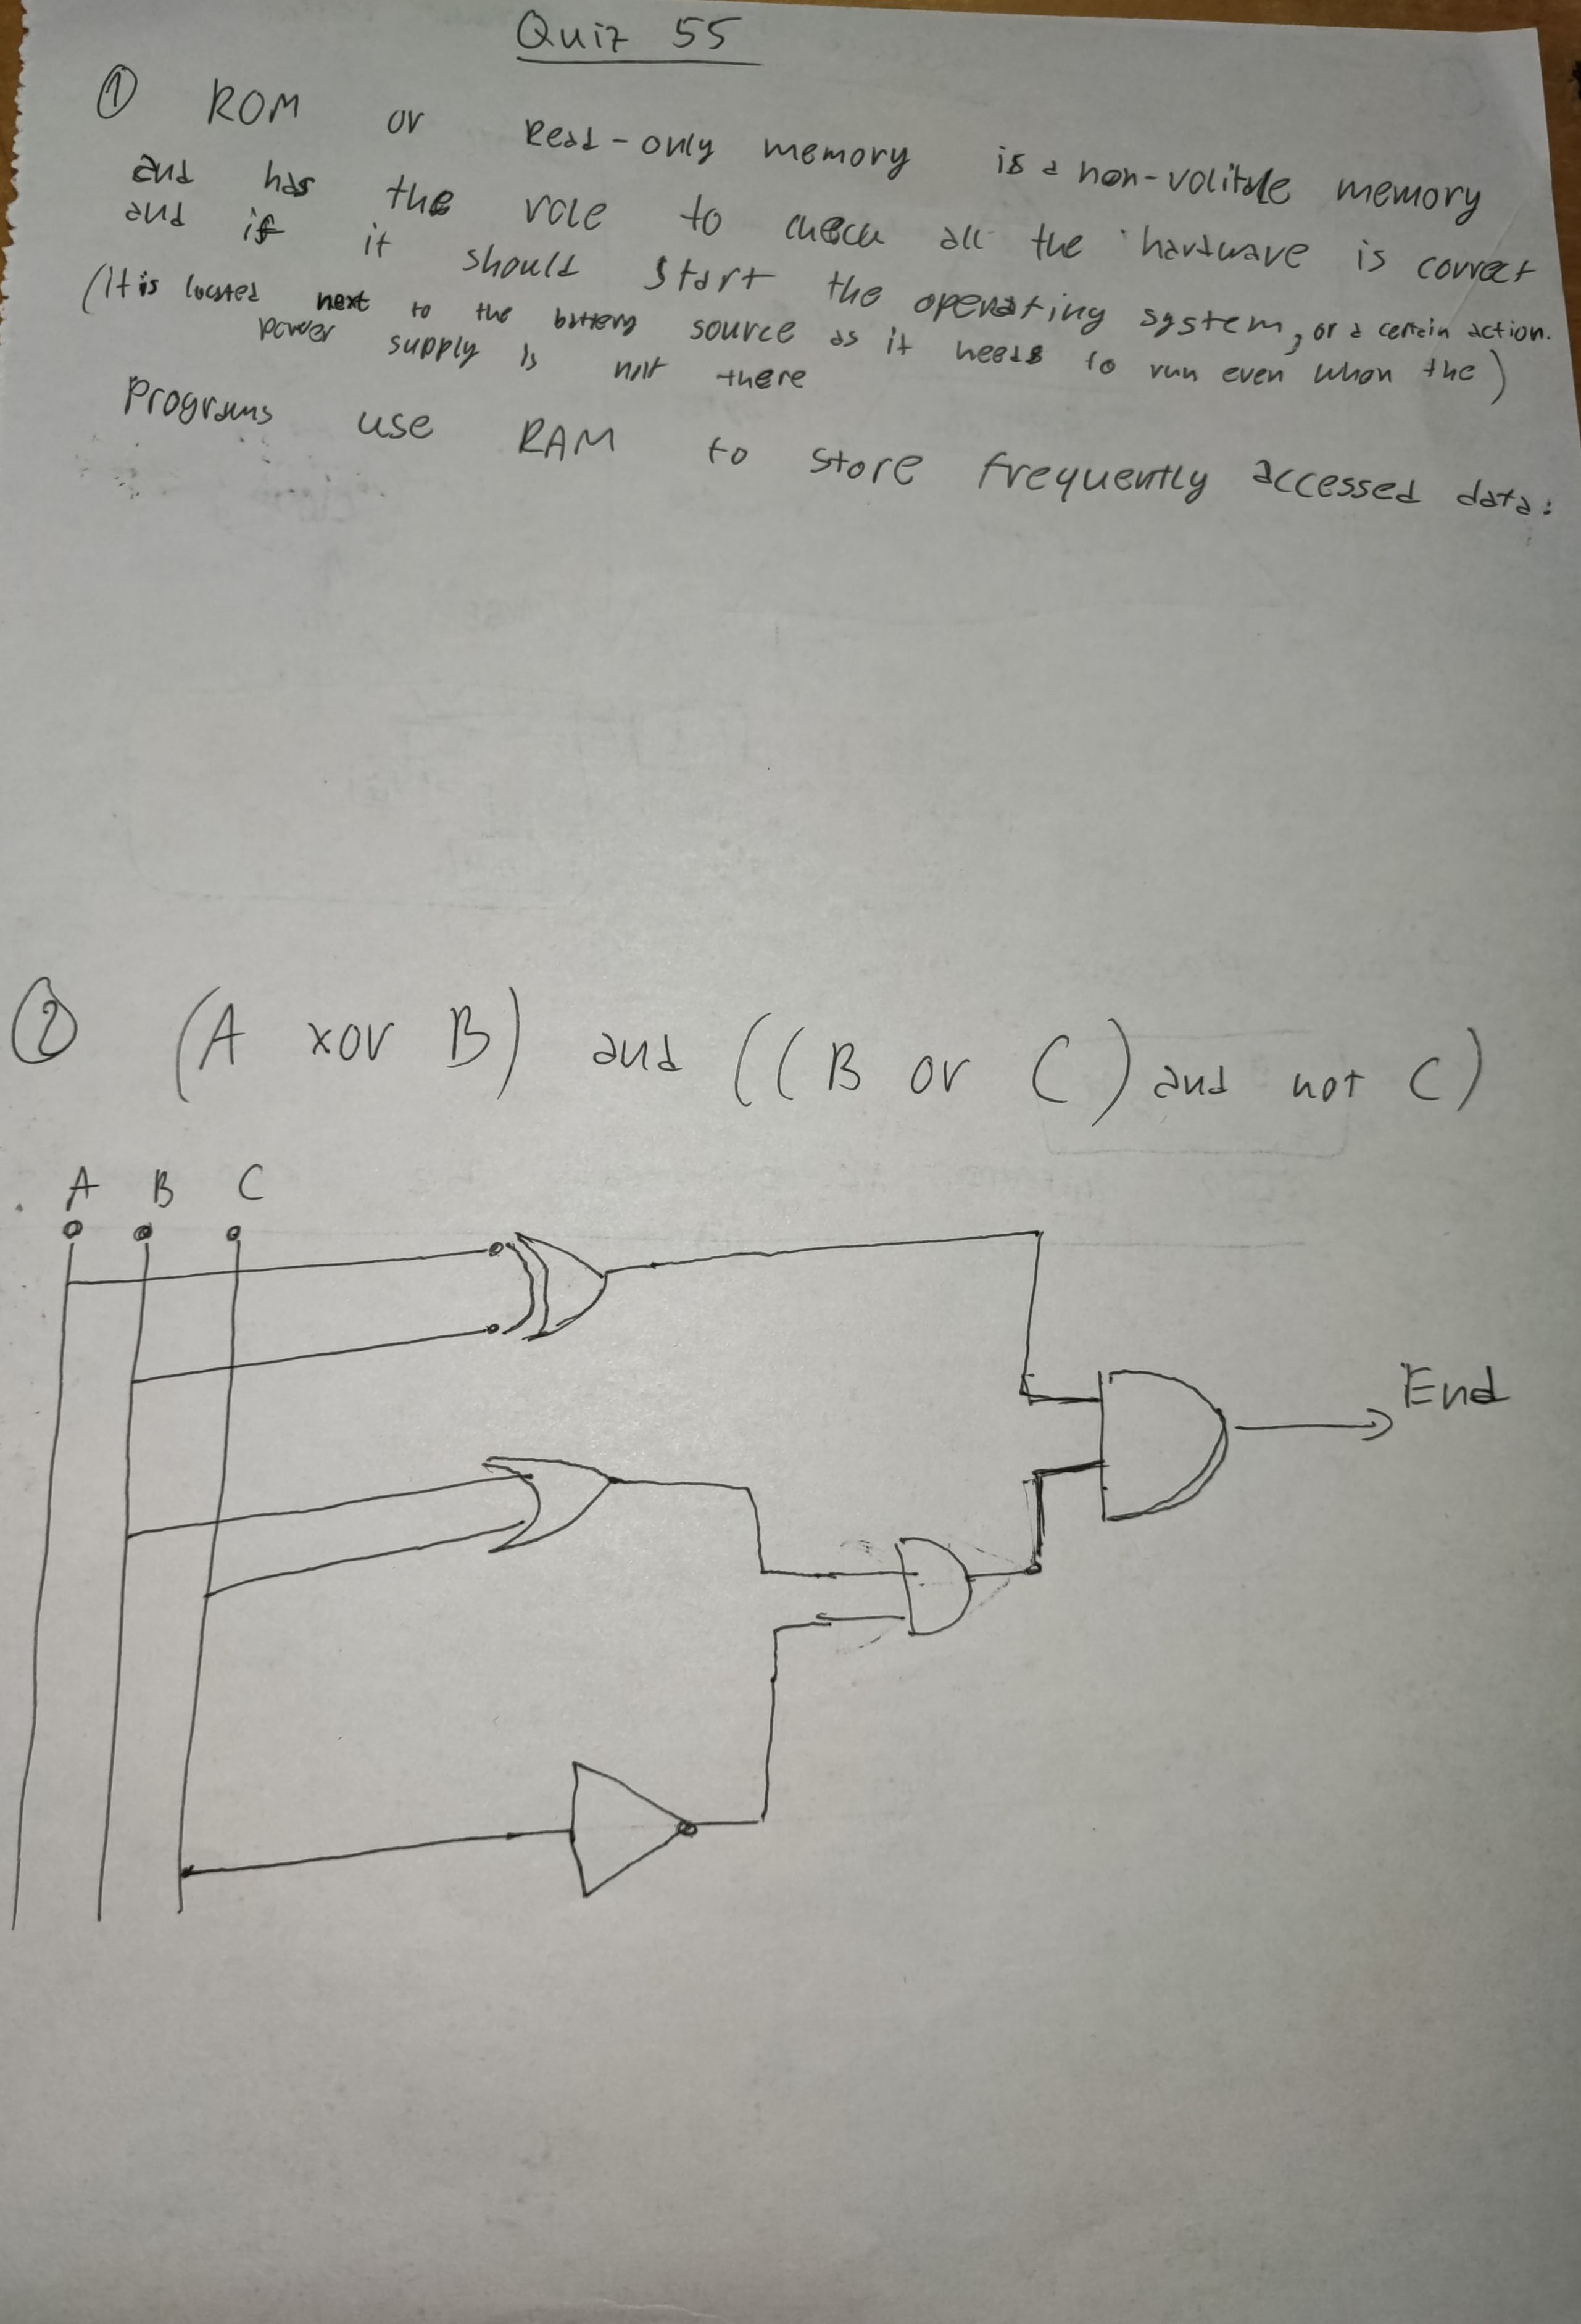 Quiz 55
① ROM or Read-only memory is a non-volitale memory
and has the role to check all the hardware is correct
and if it should start the operating system, or a certain action.
(It is located next to the battery source as it needs to run even when the)
power supply is not there
Programs use RAM to store frequently accessed data.
② (A xor B) and ((B or C) and not C)
A B C
End